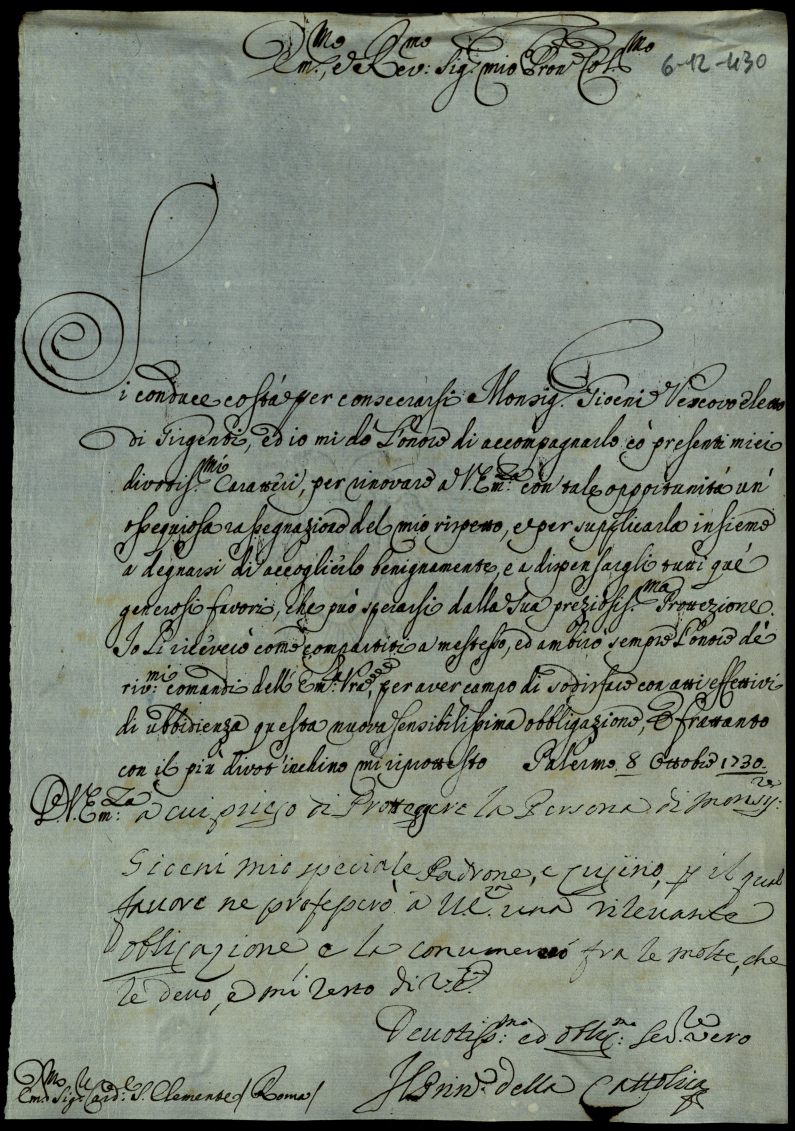 Em.mo, e Rev:mo Sig.r mio Pron.e Col.mo
6-12-430
Si conduce costà per consecrarsi Monsig.r Gioeni Vescovo eletto
di Girgenti, ed io mi dò l'onore di accompagnarlo cò presenti miei
divotis.mi Caratteri, per rinovare a V.Em.za con tale opportunità un'
ossequiosa rassegnazione del mio rispetto, e per supplicarla insieme
a degnarsi di accoglierlo benignamente, e a dispensargli tutti què
generosi favori, che può sperarsi dalla Sua preziosis.ma Protezzione.
Io li riceverò come compartiti a mestesso, ed ambirò sempre l'onore dè
riv:mi comandi dell'Em.za Vra, per aver campo di sodisfare con atti effettivi
di ubbidienza questa nuova sensibilissima obbligazione, E frattanto
con il più divot'inchino mi riprottesto Palermo 8 Ottobre 1730.
D.V.Em:za a cui priego di Protteggere la Persona di Monsig.re
Gioeni mio speciale Padrone, e Cugino, p il qual
favore ne professerò a V.E. una rilevante
obligazione e la conumererò fra le molte, che
le devo, e mi resto di V.E.
Devotiss:mo ed oblig:mo Ser.re vero
Il Prin.e della Cattolica
Em.mo Sig.r Card: S. Clemente / Roma /